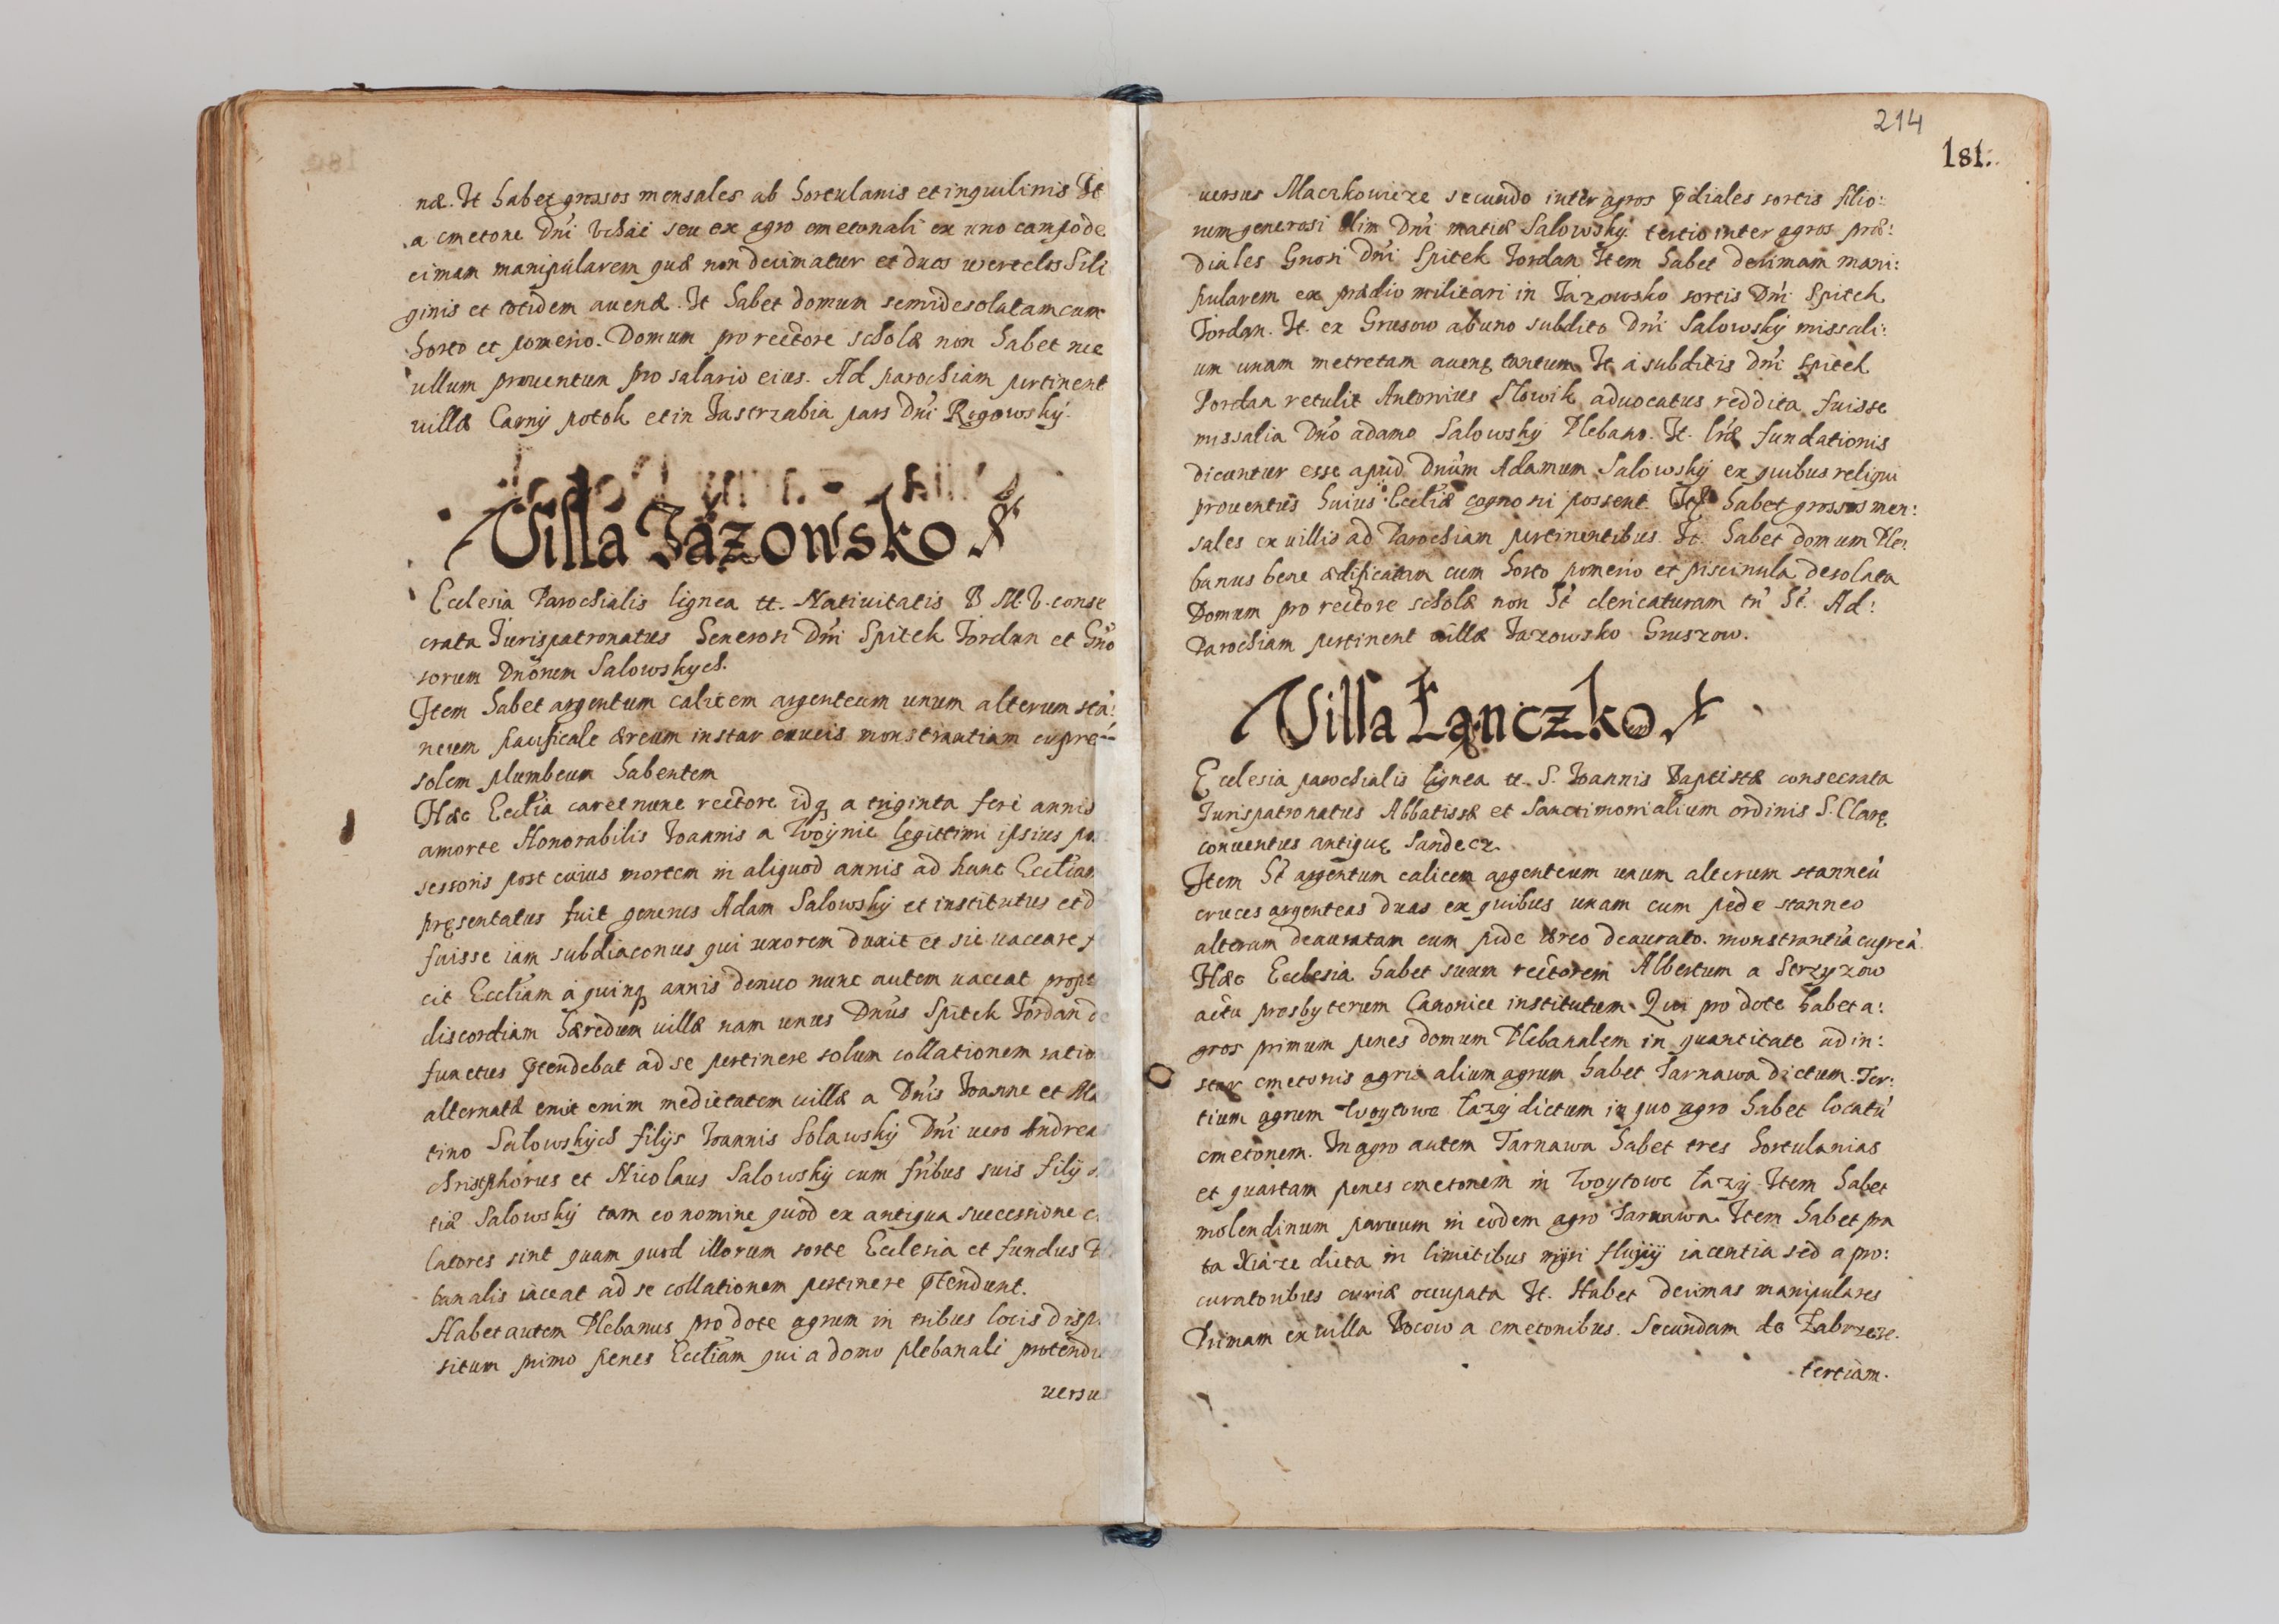 næ. It habet grossos mensales ab hortulanis et inquilinis It
a cmetone Dni Vchaĉ seu ex agro cmetonali ex uno campo de
cimam manipularem quæ non decimatur et duos wertelos sili
ginis et totidem auenæ. It habet domum semidesolatam cum
horto et pomerio. Domum pro rectore scholæ non habet nec
ullum prouentum pro salario eius. Ad parochiam pertinent
uillæ Carny potok et in Jastrzabia pars Dni Rogowsky.
Villa Jazowsko
Ecclesia Parochialis lignea tt. Natiuitatis B M. V. conse
crata Jurispatronatus Generosi Dni Spitek Jordan et Gno
sorum Dnorum Salowskych.
Item habet argentum calicem argenteum unum alterum sta:
neum pacificale æreum instar crucis monstrantiam cupre
solem plumbeum habentem
Hæc Ecclia caret nunc rectore idq a triginta feri annis
a morte Honorabilis Joannis a Woynic legittimi ipsius po
sessoris post cuius mortem in aliquod annis ad hanc Eccliam
pręsentatus fuit generus Adam Salowsky et institutus et d
fuisse iam subdiaconus qui uxorem duxit et sic uaccare f
cit Eccliam a quinq annis denuo nunc autem uaccat propt
discordiam hæredum uillæ nam unus Dnus Spitek Jordan de
functus ptendebat ad se pertinere solum collationem ratio
alternatæ emit enim medietatem uillæ a Dnis Joanne et Ma
tino Salowskych filijs Joannis Solawsky Dni uero Andreas
christphorus et Nicolaus Salowsky cum fribus suis filij
tiæ Salowsky tam eo nomine quod ex antiqua successione c
latores sint quam quod illorum sorte Ecclesia et fundus Ple
banalis iaceat ad se collationem pertinere ptendunt.
Habet autem Plebanus pro dote agrum in tribus locis disp
situm primo penes Eccliam qui a domo plebanali protendi
uersus
214
181.
uersus Maczkowicze secundo inter agros pdiales sortis filio:
rum generosi olim Dni matiæ Salowsky tertio inter agros præ:
diales Gnosi Dni Spitek Jordan Item habet decimam mani:
pularem ex prædio militari in Jazowsko sortis Dni Spitek
Jordan. It. ex Grusow ab uno subdito Dni Salowsky missali:
um unam metretam auenę tantum It. a subditis Dni Spitek
Jordan retulit Antonius Slowik aduocatus reddita fuisse
missalia Dno adamo Salowsky Plebano. It. lræ fundationis
dicuntur esse apud Dnum Adamum Salowsky ex quibus reliqui
prouentus huius Eccliæ cognosci possent. Itē habet grossos men:
sales ex uillis ad Parochiam pertinentibus. It. habet domum Ple:
banus bene ædificatam cum horto pomerio et piscinula desolata
Domum pro rectore scholæ non ht clericaturam tn ht. Ad:
Parochiam pertinent uillæ Jazowsko Gruszow.
Villa Łąnczko
Ecclesia parochialis lignea tt. S. Joannis Baptistæ consecrata
Jurispatronatus Abbatissæ et Sanctimonialium ordinis S. Clarę
conuentus antiquę Sandecz.
Item ht argentum calicem argenteum unum alterum stanneū
cruces argenteas duas ex quibus unam cum pede stanneo
alteram deauratam cum pede æreo deaurato. monstrantiā cupreā
Hæc Ecclesia habet suum rectorem Albertum a Strzyzow
actu prosbyterum Canonice institutum Qui pro dote habet a:
gros primum penes domum Plebanalem in quantitate ad in:
star cmetonis agri alium agrum habet Tarnawa dictum. Ter:
tium agrum Woytowe łazy dictum in quo agro habet locatū
cmetonem. In agro autem Tarnawa habet tres hortulanias
et quartam penes cmetonem in Woytowe łazy Item habet
molendinum paruum in eodem agro Tarnawa. Item habet pra
ta Xiaze dicta in limitibus fluuij iacentia sed a pro:
curatoribus curiæ occupata It. Habet decimas manipulares
Primam ex uilla Bocow a cmetonibus. Secundam de Zabrzeze.
tertiam.